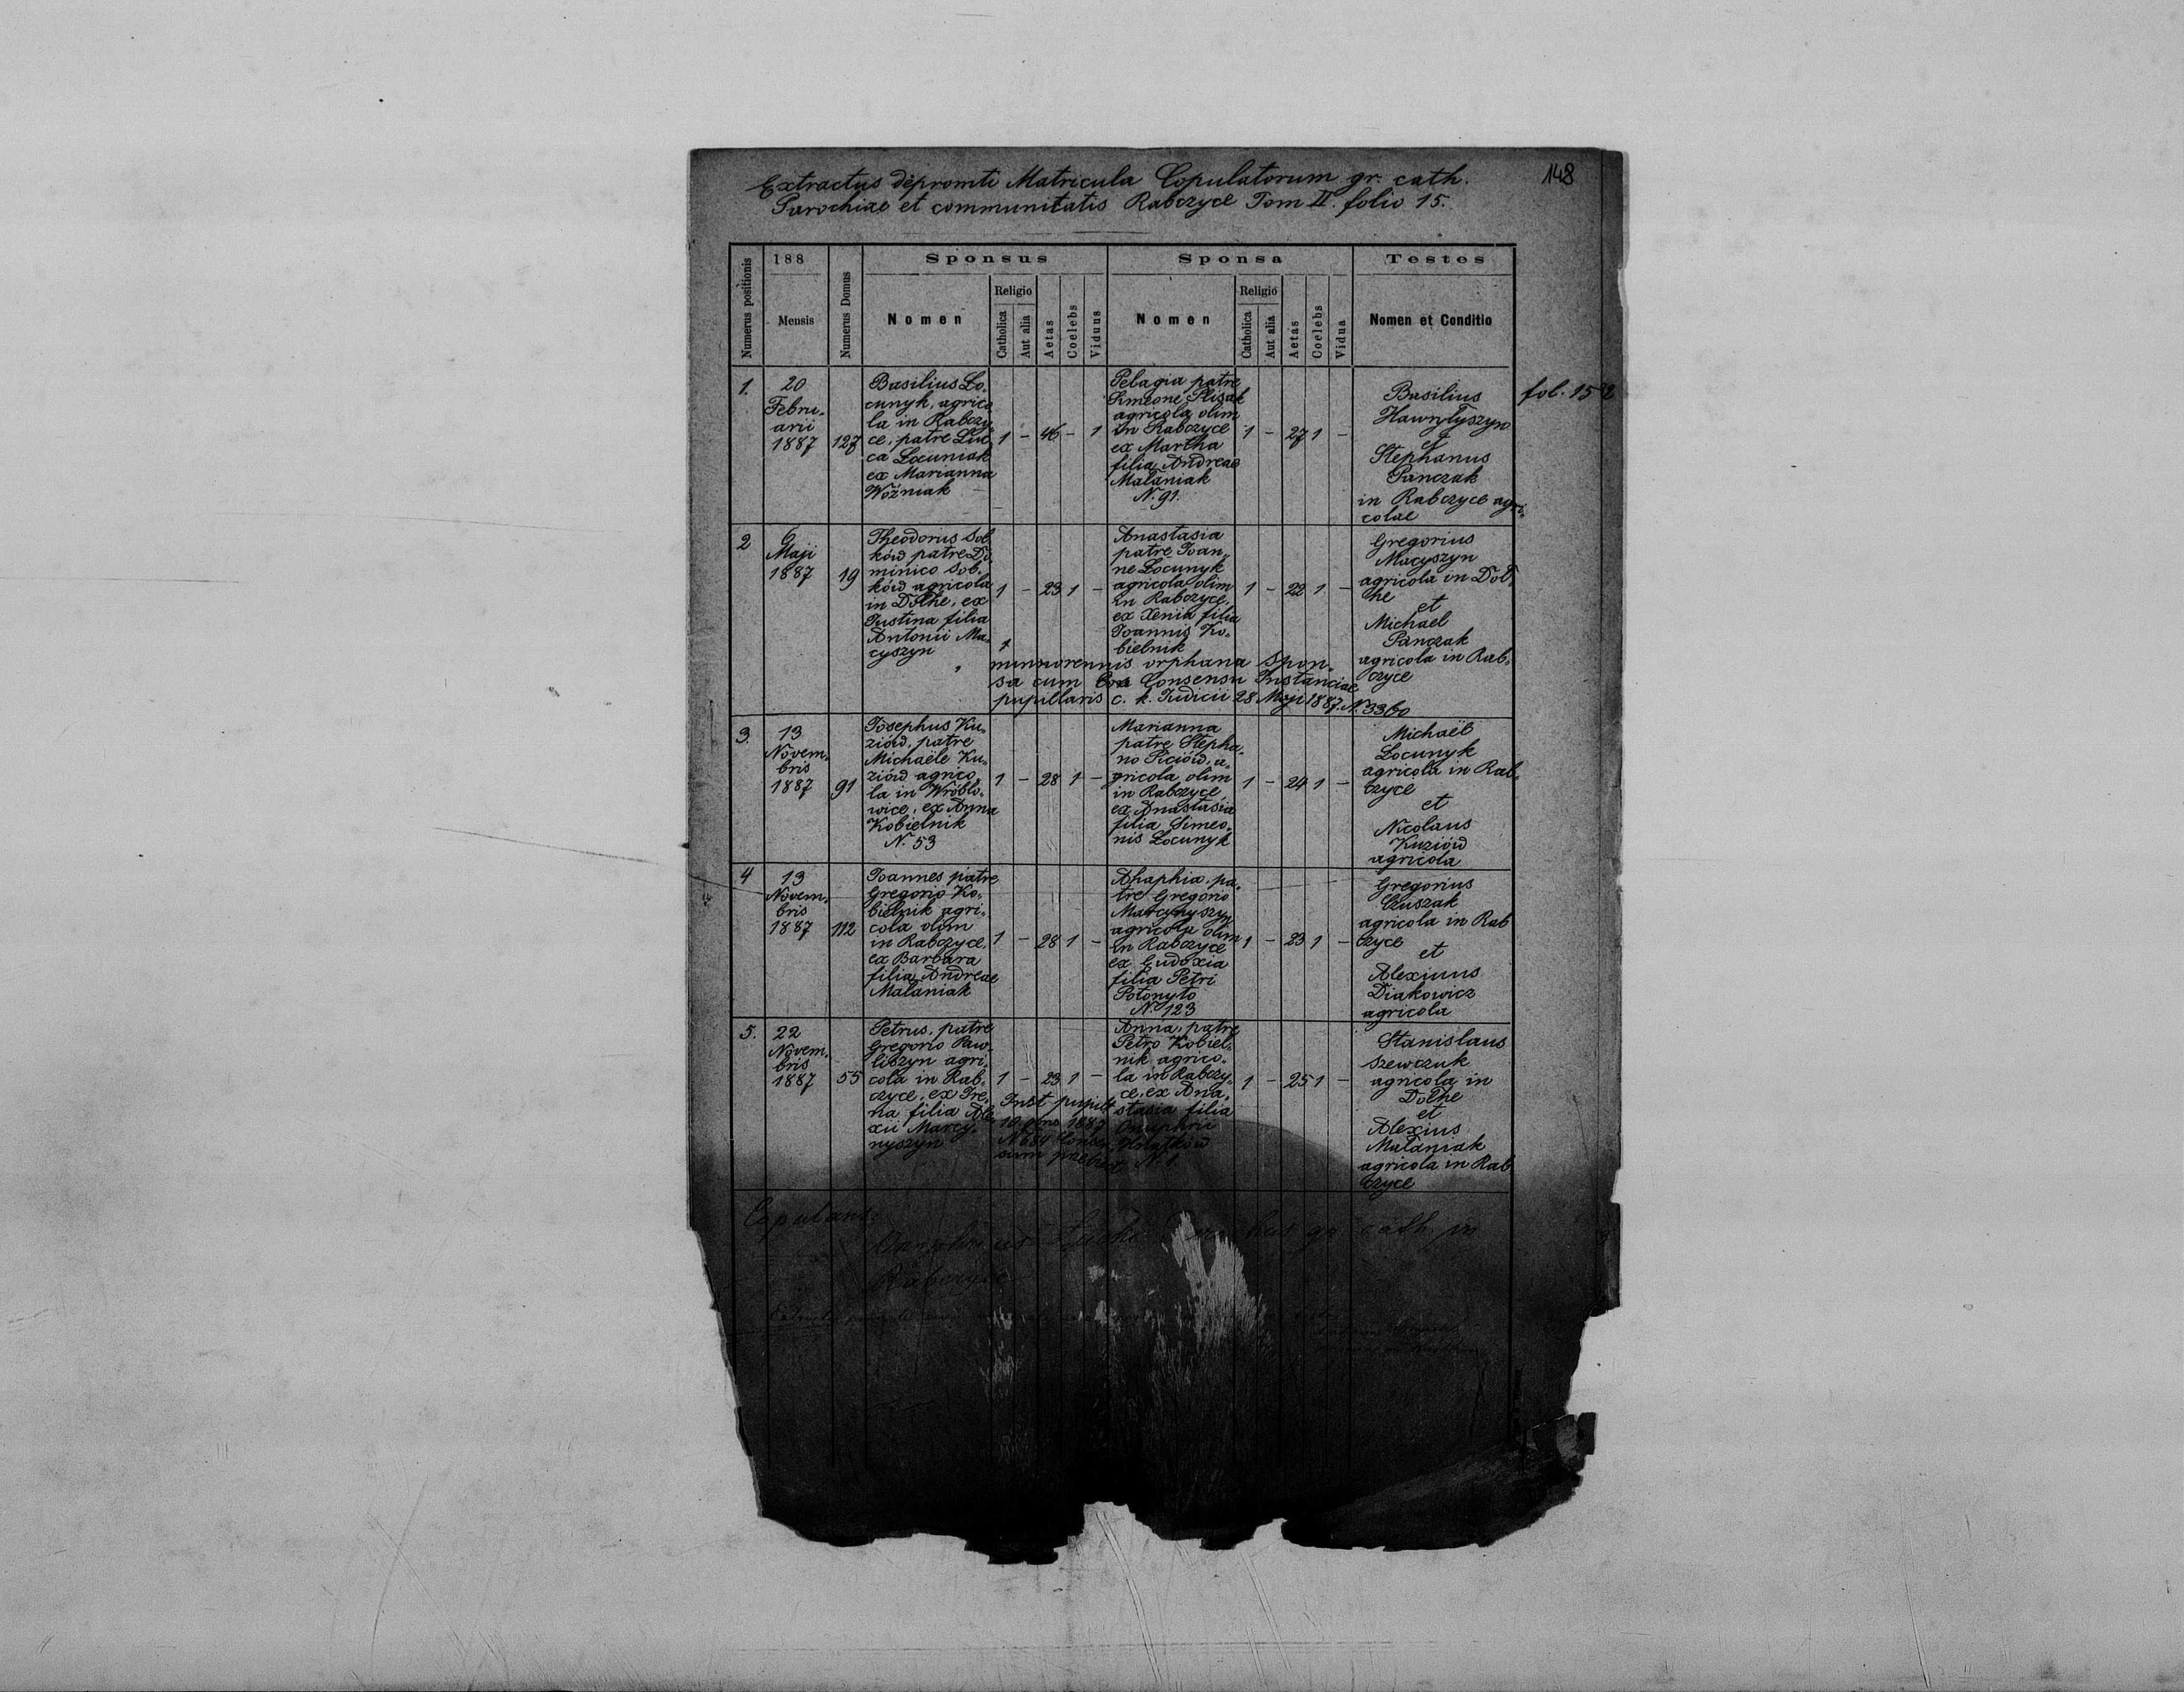 148
Extractus depromti Matricula Copulatorum gr. cath.
Parochiae et communitatis Rabczyce Tom II. folio 15.
Numerus positionis
188
Mensis
Numerus Domus
Sponsus
Nomen
Religio
Catholica
Aut alia
Aetas
Coelebs
Viduus
Sponsa
Nomen
Religio
Catholica
Aut alia
Aetas
Coelebs
Vidua
Testes
Nomen et Conditio
1.
20
Febru-
arii
1887
127
Basilius Lo-
cunyk, agrico
la in Rabczy-
ce, patre Luc
ca Locuniak
ex Marianna
Woźniak
1 - 46 - 1
Pelagia patre
Simeone Plisak
agricola olim
in Rabczyce
ex Martha
filia Andreae
Malaniak
N. 91.
1 - 27 1 -
Basilius
Hawryłyszyn
et
Stephanus
Panczak
in Rabczyce agri-
colae
fol. 15
2
6
Maji
1887
19
Theodorus Sob
ków patre Do
minico Sob-
ków agricola
in Dołhe, ex
Justina filia
Antonii Ma-
cyszyn
1 - 23 1 -
Anastasia
patre Joan-
ne Locunyk
agricola olim
in Rabczyce,
ex Xenia filia
Joannis Ko-
bielnik
1 - 22 1 -
minnorennis orphana Spon-
sa cum Consensu Instanciae
pupillaris c. k. Judicii 28 Maji 1887. N. 3360
Gregorius
Macyszyn
agricola in Doł
he
et
Michael
Panczak
agricola in Rab-
czyce
3.
13
Novem-
bris
1887
91
Josephus Ku-
ziów, patre
Michaële Ku-
ziów agrico-
la in Wróblo-
wice, ex Anna
Kobielnik
N. 53
1 - 28 1 -
Marianna
patre Stepha-
no Piciów, a-
gricola olim
in Rabczyce,
ex Anastasia
filia Simeo-
nis Locunyk
1 - 24 1 -
Michaël
Locunyk
agricola in Rab-
czyce
et
Nicolaus
Kuziów
agricola
4
13
Novem-
bris
1887
112
Joannes patre
Gregorio Ko-
bielnik agri-
cola olim
in Rabczyce,
ex Barbara
filia Andreae
Malaniak
1 - 28 1 -
Ahaphia, pa-
tre Gregorio
Marcynyszyn
agricola olim
in Rabczyce
ex Eudoxia
filia Petri
Potonyto
N. 123
1 - 23 1 -
Gregorius
Czuszak
agricola in Rab
czyce
et
Alexiuus
Diakowicz
agricola
5.
22
Novem-
bris
1887
55
Petrus, patre
Gregorio Paw-
liszyn agri-
cola in Rab-
czyce, ex Ire-
na filia Ale
xii Marcy-
nyszyn
1 - 23 1 -
Inst pupill
10 1887
N 684 Consen-
sum praebet
Anna, patre
Petro Kobiel-
nik agrico-
la in Rabczy-
ce, ex Ana-
stasia filia
Onuphrii
N. 1.
1 - 25 1 -
Stanislaus
Szewczuk
agricola in
Dołhe
et
Alexius
Malaniak
agricola in Rab
czyce
Copulans:
gr cath. in
Rabczyce